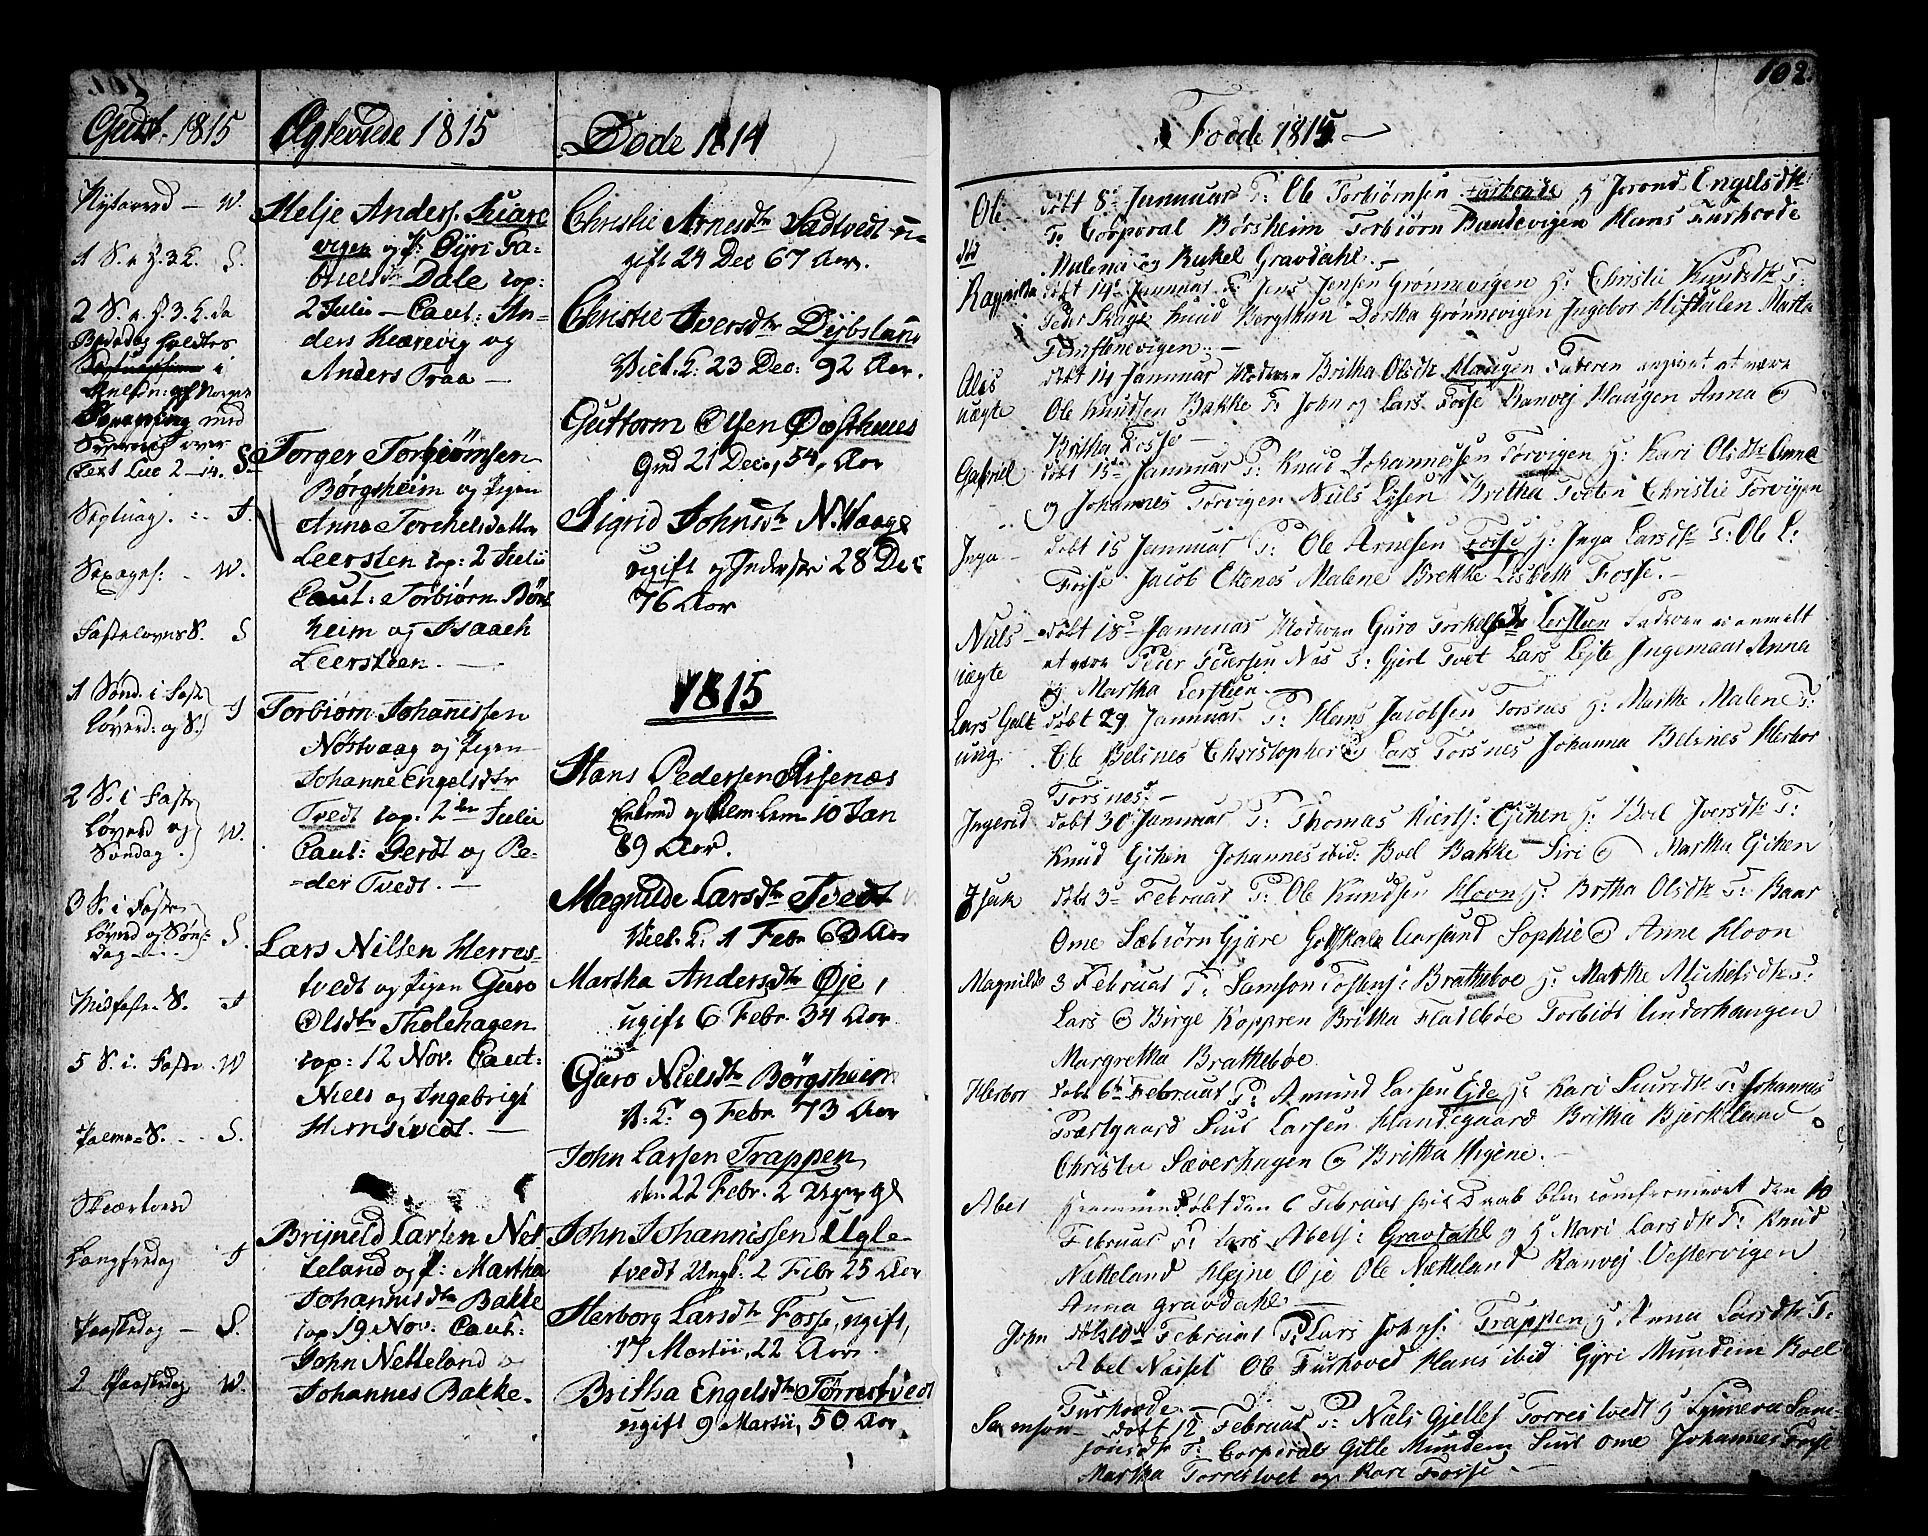 Gudst. 1815
Nytaarsd — W.
1 S. e. H. 3 K. S.
2 S. e. H. 3 K. da
Bededag holdtes
i
af Norges
med
Sverrig over
Text Luc 2-14. S.
Septuag. - J.
Sexages: - W.
Fastelovns S. S
1 Sønd. i Faste
Løverd: og S. J
2 S. i Faste
Løverd og
Søndag W.
3 S. i Faste
Løverd og Søn-
dag S.
Midfaste S. J
5 S. i Faste W
Palme S. - S.
Skiærtorsd
Langfredag J
Paaskedag — S.
2 Paaskedag W.
Egteviede 1815
Helje Anders. Kuare
vigen og P: Gyri Ga-
brielsdtr Dale cop:
2 Julii — Caut: An-
ders Kuarevig og
Anders Traa —
Torger Torbiørnsen
Børgsheim og Pigen
Anna Torchelsdatter
Leersteen cop: 2 Julii
Caut: Torbiørn Børs
heim og Isaach
Leersteen. —
Torbiørn Johanissen
Nøstvaag og Pigen
Johanne Engelsdtr
Tvedt cop: 2den Julii
Caut: Gerdt og Pe-
der Tvedt. —
Lars Nilsen Herres-
tvedt og Pigen Guro
Olsdtr Tholehagen
cop: 12 Nov. Caut:
Niels og Ingebrigt
Herrestvedt. —
Brynild Larsen Net
teland og P: Martha
Johannisdtr Bakke
cop 19 Nov: Caut:
John Netteland
Johannes Bakke.
Døde 1814
Christie Arnesdtr Vadtvedt u-
gift 24 Dec 67 Aar.
Christie Iversdtr Dybsland
Viet. L: 23 Dec: 92 Aar.
Guttorm Olsen Øvsthuus
Gmd 21 Dec, 54 Aar
Sigrid Johnsdtr N. Waage
ugift og Inderste 28 Dec
76 Aar
1815
Hans Pedersen Risenæs
Enkemd og Alm: Lem 10 Jan
89 Aar.
Magnilde Larsdtr Tvedt
Viet. L. 1 Febr 63 Aar
Martha Andersdtr Øje,
ugift 6 Febr. 34 Aar
Guro Nielsdtr Børgsheim
V: L. 9 Febr 73 Aar
John Larsen Trappen
den 22 Febr. 2 Uger gl
John Johannissen Ugle-
tvedt Ungk: 2 Febr 25 Aar
Herborg Larsdtr Fosse, ugift,
17 Martii, 22 Aar.
Britha Engelsdtr Torrestvedt
ugift 9 Martii, 50 Aar.
102.
Føde 1815 —
Ole døbt 8 Januar F: Ole Torbiørnsen Furhovde H Jorond Engelsdtr
F: Corporal Børsheim Torbiørn Bandevigen Hans Furhovde
Malena og Rukel Gravdahl. —
Ragnilda døbt 14 Januar F: Jens Jensen Grønnevigen H: Christie Knudsdtr F:
Peder Skage Knud Berghun Dortha Grønnevigen Ingebor Hiftalen Marta
Femstenevigen. —
Alis døbt 14 Januar Moderen Britha Olsdtr Haugen Faderen angivet at være
uægte Ole Knudsen Bakke F: John og Lars Fosse Ranvej Haugen Anna &
Britha Fosse —
Gabriel døbt 15 Januar F: Knud Johannessen Torvigen H: Kari Olsdtr Anne
og Johannes Torvigen Niels Lysen Britha Tveten Christie Torvigen
Inga — døbt 15 Januar F: Ole Arnesen Fosse H: Inga Larsdtr F: Ole L:
Fosse Jacob Ekenes Malene Brekke Lisbeth Fosse. —
Niels — døbt 18 Januar Moderen Guro Torkelsdtr Lersteen Faderen er anmelt
uægte at være Peder Pedersen Nas F: Gjert Tvet Lars Lejte Ingemaar Anna
& Martha Lersteen. —
Lars Galt døbt 29 Januar F: Hans Jacobsen Torsnes H: Marthe Malene F:
ung. Ole Belsnes Christopher & Lars Torsnes Johanna Belsnes Herbor
Torsnes. —
Ingerid døbt 30 Januar F: Thomas Gjthen H: Boel Iversdtr F:
Knud Gjthen Johannes ibid: Boel Bakke Siri & Martha Gjthen
Isak døbt 3 Februar F: Ole Knudsen Hoon H: Britha Olsdtr F: Baar
Ome Sæbiørn Gjære Godskalk Aarsand Sophie & Anne Hoon
Magnilde 3 Februar F: Samson Tostens: Bratteboe H: Marthe Michelsdtr F:
Lars & Birge Koppren Britha Flatebøe Torbiør Underhaugen
Margretha Brattebøe
Herbor døbt 6 Februar F: Amund Larsen Eide H: Kari Siursdtr F: Johannes
Præstgaard Siur Larsen Handegaard Britha Bjerkeland
Christie Sæverhagen & Britha Vigene. —
Abel hjemmedøbt den 6 Februar hvis Daab blev confirmeret den 10
Februar F: Lars Abels: Gravdahl og H Mari Larsdtr F: Knud
Nætteland Klejne Øje Ole Nætteland Ranvej Vestervigen
Anna Gravdahl —
John døbt 10 Februar F: Lars Johns: Trappen H Anna Larsdtr F:
Abel Næsset Ole Furhoved Hans ibid Gyri Mundem Boel
Furhovde —
Samson — døbt 12 Februar F: Niels Gjellef Torrestvedt H Synneva Sam-
sonsdtr F: Corporal Gitle Mundem Siur Ome Johannes Fosse
Martha Torrestvet og Kari Fosse. —